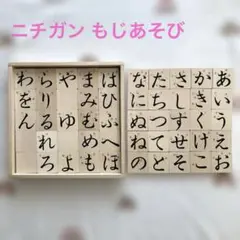 ニチガン もじあそび
あいうえお
かきくけこ
さしすせそ
たちつてと
なにぬねの
はひふへほ
まみむめも
やゆよ
らりるれろ
わをん